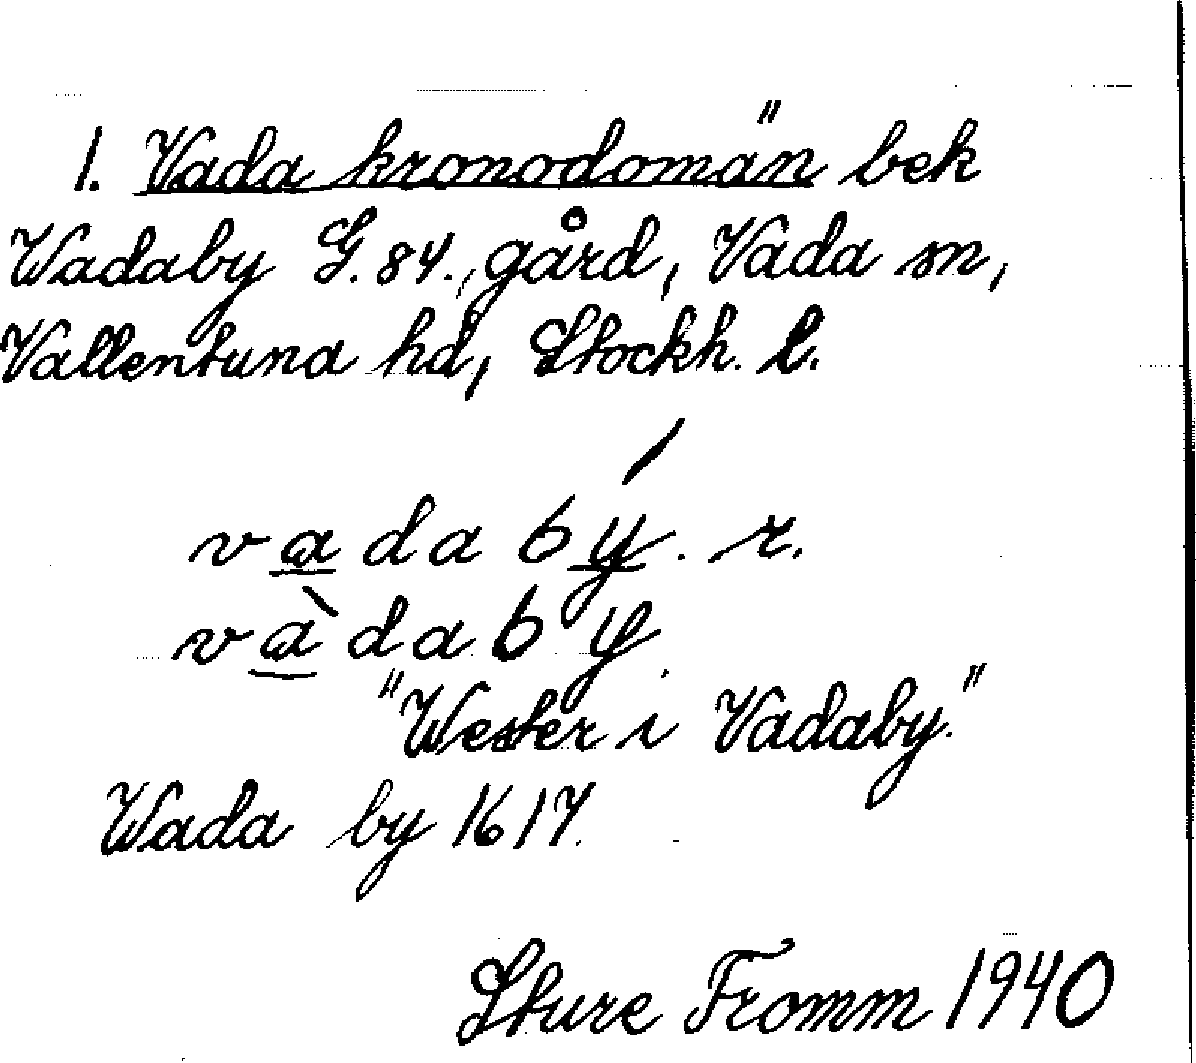 1. Vada kronodomän bek
Wadaby G. 84., gård, Vada sn,
Vallentuna hd, Stockh. l.
vadabý. r.
vàdaby.
"Wester i Vadaby."
Wada by 1617.
Sture Fromm 1940